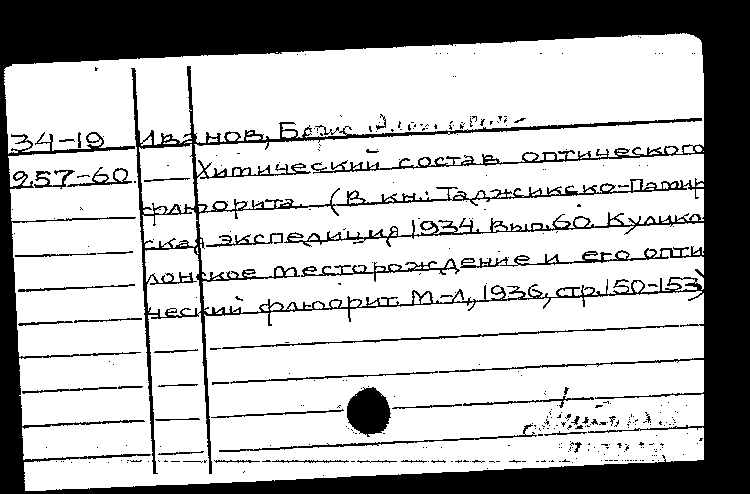 34-19 Иванов, Борис
957-60 Химический состав оптического
флюорита. (В кн.: Таджикско-Памир
ская экспедиция 1934. Вып. 60. Кулико
лонское месторождение и его опти
ческий флюорит. М.-Л., 1936, стр. 150-153)